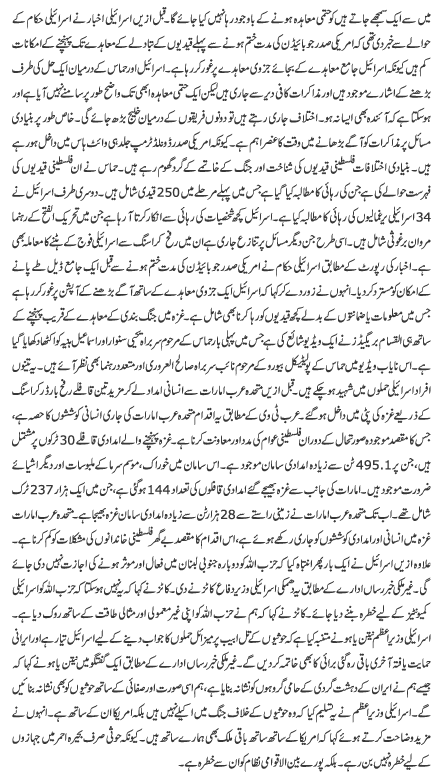 میں سے ایک سمجھے جاتے ہیں کو حتمی معاہدہ ہونے کے باوجود رہا نہیں کیا جائے گا۔ قبل ازیں اسرائیلی اخبار نے اسرائیلی حکام کے
حوالے سے خبر دی تھی کہ امریکی صدر جو بائیڈن کی مدت ختم ہونے سے پہلے قیدیوں کے تبادلے کے معاہدے تک پہنچنے کے امکانات
کم ہیں کیونکہ اسرائیل جامع معاہدے کے بجائے جزوی معاہدے پر غور کر رہا ہے۔ اسرائیل اور حماس کے درمیان ایک حل کی طرف
بڑھنے کے اشارے موجود ہیں اور مذاکرات کافی دیر سے جاری ہیں لیکن ایک حتمی معاہدہ ابھی تک واضح طور پر سامنے نہیں آیا ہے اور
ہو سکتا ہے کہ آئندہ بھی ایسا نہ ہو۔ خاص طور پر جب تک اختلاف جاری رہتے ہیں تو دونوں فریقوں کے درمیان خلیج بڑھ جائے گی۔ بنیادی
مسائل پر مذاکرات کو آگے بڑھانے میں وقت کا عنصر اہم ہے۔ کیونکہ امریکی صدر ڈونلڈ ٹرمپ جلد ہی وائٹ ہاس میں داخل ہو رہے
ہیں۔ بنیادی اختلافات فلسطینی قیدیوں کی شناخت اور جنگ کے خاتمے کے گرد گھوم رہے ہیں۔ حماس نے ان فلسطینی قیدیوں کی
فہرست حوالے کی ہے جن کی رہائی کا مطالبہ کیا گیا ہے جس میں پہلے مرحلے میں 250 قیدی شامل ہیں۔ دوسری طرف اسرائیل نے
34 اسرائیلی یرغمالیوں کی رہائی کا مطالبہ کیا ہے۔ اسرائیل کچھ شخصیات کی رہائی سے انکار کرتا آ رہا ہے جن میں تحریک الفتح کے رہنما
مروان برغوثی شامل ہیں۔ اسی طرح جن دیگر مسائل پر تنازع جاری ہے ان میں رفح کراسنگ سے اسرائیلی فوج کے ہٹنے کا معاملہ بھی
ہے۔ اخبار کی رپورٹ کے مطابق اسرائیلی حکام نے امریکی صدر جو بائیڈن کی مدت ختم ہونے سے قبل ایک جامع ڈیل طے پانے
کے امکان کو مسترد کر دیا۔ انہوں نے زور دے کر کہا کہ اسرائیل ایک جزوی معاہدے کے ساتھ آگے بڑھنے کے آپشن پر غور کر رہا ہے
جس میں معلومات یا ضمانتوں کے بدلے کچھ قیدیوں کو رہا کرنا بھی شامل ہے۔ غزہ میں جنگ بندی کے معاہدے کے قریب پہنچنے کے
ساتھ ہی القسام بریگیڈز نے ایک ویڈیو شائع کی ہے جس میں پہلی بار حماس کے مرحوم سربراہ یحیی سنوار اور اسماعیل ہنیہ کو اکٹھا دکھایا گیا
ہے۔ اس نایاب ویڈیو میں حماس کے پولیٹیکل بیورو کے مرحوم نائب سربراہ صالح العروری اور متعدد رہنما بھی نظر آئے ہیں۔ یہ تینوں
افراد اسرائیلی حملوں میں شہید ہو چکے ہیں۔ قبل ازیں متحدہ عرب امارات سے انسانی امداد لے کر مزید تین قافلے رفح بارڈر کراسنگ
کے ذریعے غزہ کی پٹی میں داخل ہو گئے۔ عرب ٹی وی کے مطابق یہ اقدام متحدہ عرب امارات کی جاری انسانی کوششوں کا حصہ ہے،
جس کا مقصد موجودہ صورتحال کے دوران فلسطینی عوام کی مدد اور معاونت کرنا ہے۔ غزہ پہنچنے والے امدادی قافلے 30 ٹرکوں پر مشتمل
ہیں، جن پر 495.1 ٹن سے زیادہ امدادی سامان موجود ہے۔ اس سامان میں خوراک، موسم سرما کے ملبوسات اور دیگر اشیائے
ضرورت موجود ہیں۔ امارات کی جانب سے غزہ بھیجے گئے امدادی قافلوں کی تعداد 144 ہو گئی ہے، جن میں ایک ہزار 237 ٹرک
شامل تھے۔ اب تک متحدہ عرب امارات نے زمینی راستے سے 28 ہزار ٹن سے زیادہ امدادی سامان غزہ بھیجا ہے۔ متحدہ عرب امارات
غزہ میں انسانی اور امدادی کوششوں کو جاری رکھے ہوئے ہے، اس اقدام کا مقصد بے گھر فلسطینی خاندانوں کی مشکلات کو کم کرنا ہے۔
علاوہ ازیں اسرائیل نے ایک بار پھر انتباہ کیا ہے کہ حزب اللہ کو دوبارہ جنوبی لبنان میں فعال اور موثر ہونے کی اجازت نہیں دی جائے
گی۔ غیر ملکی خبر رساں ادارے کے مطابق یہ دھمکی اسرائیلی وزیر دفاع کاٹز نے دی۔ کاٹز نے کہا کہ یہ نہیں ہو سکتا کہ حزب اللہ کو اسرائیلی
کمیونٹیز کے لیے خطرہ بننے دیا جائے۔ کاٹز نے کہا کہ ہم نے حزب اللہ کو اپنی غیر معمولی اور مثالی طاقت کے ساتھ روک دیا ہے۔
اسرائیلی وزیر اعظم نیتن یاہو نے متنبہ کیا ہے کہ حوثیوں کے تل ابیب پر میزائل حملوں کا جواب دینے کے لیے اسرائیل تیار ہے اور ایرانی
حمایت یافتہ آخری باقی رہ گئی برائی کا بھی خاتمہ کر دیں گے۔ غیر ملکی خبر رساں ادارے کے مطابق ایک گفتگو میں نیتن یاہو نے کہا کہ
جیسے ہم نے ایران کے دہشت گردی کے حامی گروہوں کو نشانہ بنایا ہے، ہم اسی صورت اور صفائی کے ساتھ حوثیوں کو بھی نشانہ بنائیں
گے۔ اسرائیلی وزیر اعظم نے یہ تسلیم کیا کہ وہ حوثیوں کے خلاف جنگ میں اکیلے نہیں ہیں بلکہ امریکا ان کے ساتھ ہے۔ انہوں نے
مزید وضاحت کرتے ہوئے کہا کہ امریکا کے ساتھ ساتھ باقی ملک بھی ہمارے ساتھ ہیں۔ کیونکہ حوثی صرف بحیرہ احمر میں جہازوں
کے لیے خطرہ نہیں بن رہے۔ بلکہ پورے بین الاقوامی نظام کو ان سے خطرہ ہے۔